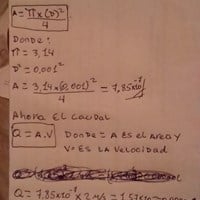 A = π x (D)²
4
Donde:
π = 3,14
D² = 0,001²
A = 3,14x(0,001)² = 7,85x10⁻⁷
4
Ahora El Caudal
Q = A.V Donde = A Es el Area y
V = Es La Velocidad
Q = 7,85x10⁻⁷ x 2 m/s = 1,57x10